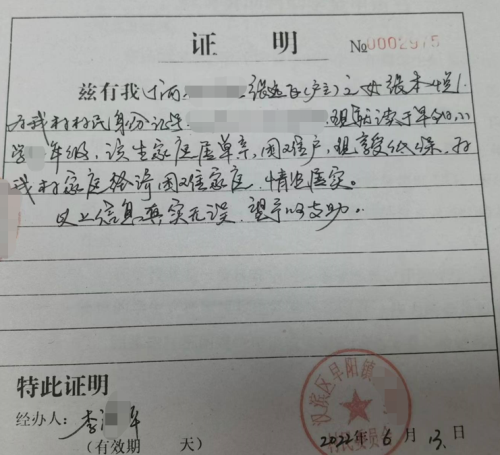 证 明
№0002975
兹有我 张 (户主)之女张本
为我村村民身份证号 现就读于早阳小
学 年级,该生家庭属单亲,困难户,现享受低保,
我村家庭经济困难家庭,情况属实。
以上信息真实无误,望予以支助。
特此证明
经办人:李 年
(有效期 天)
2022年6月13日
汉滨区早阳镇
村民委员会